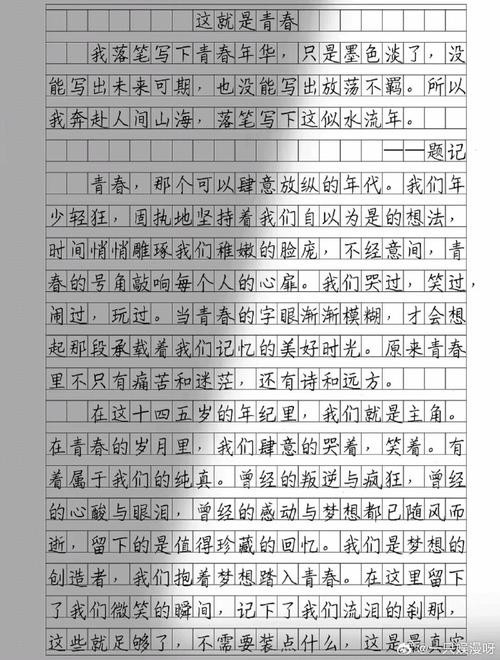 这就是青春
我落笔写下青春年华，只是墨色淡了，没
能写出未来可期，也没能写出放荡不羁。所以
我奔赴人间山海，落笔写下这似水流年。
——题记
青春，那个可以肆意放纵的年代。我们年
少轻狂，固执地坚持着我们自以为是的想法，
时间悄悄雕琢我们稚嫩的脸庞，不经意间，青
春的号角敲响每个人的心扉。我们哭过，笑过，
闹过，玩过。当青春的字眼渐渐模糊，才会想
起那段承载着我们记忆的美好时光。原来青春
里不只有痛苦和迷茫，还有诗和远方。
在这十四五岁的年纪里，我们就是主角。
在青春的岁月里，我们肆意的哭着，笑着。有
着属于我们的纯真。曾经的叛逆与疯狂，曾经
的心酸与眼泪，曾经的感动与梦想都已随风而
逝，留下的是值得珍藏的回忆。我们是梦想的
创造者，我们抱着梦想踏入青春。在这里留下
了我们微笑的瞬间，记下了我们流泪的刹那，
这些就足够了，不需要装点什么，这是最真实